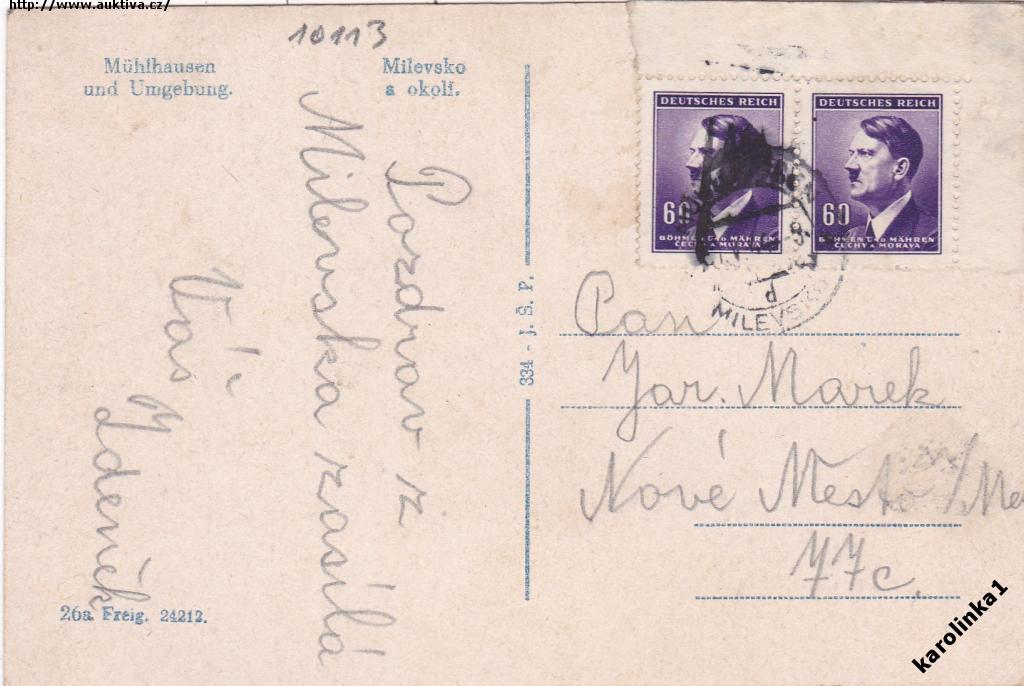 http://www.auktiva.cz/
10113
Mühlhausen
und Umgebung.
Milevsko
a okolí.
Pozdrav z
Milevska zasílá
Váš
Zdeněk
26a Freig. 24212.
334 - J. Š. P.
DEUTSCHES REICH
60
BÖHMEN UND MÄHREN
ČECHY A MORAVA
DEUTSCHES REICH
60
BÖHMEN UND MÄHREN
ČECHY A MORAVA
MILEVSKO
Pan
Jar. Marek
Nové Mesto /Me
77c.
karolinka1